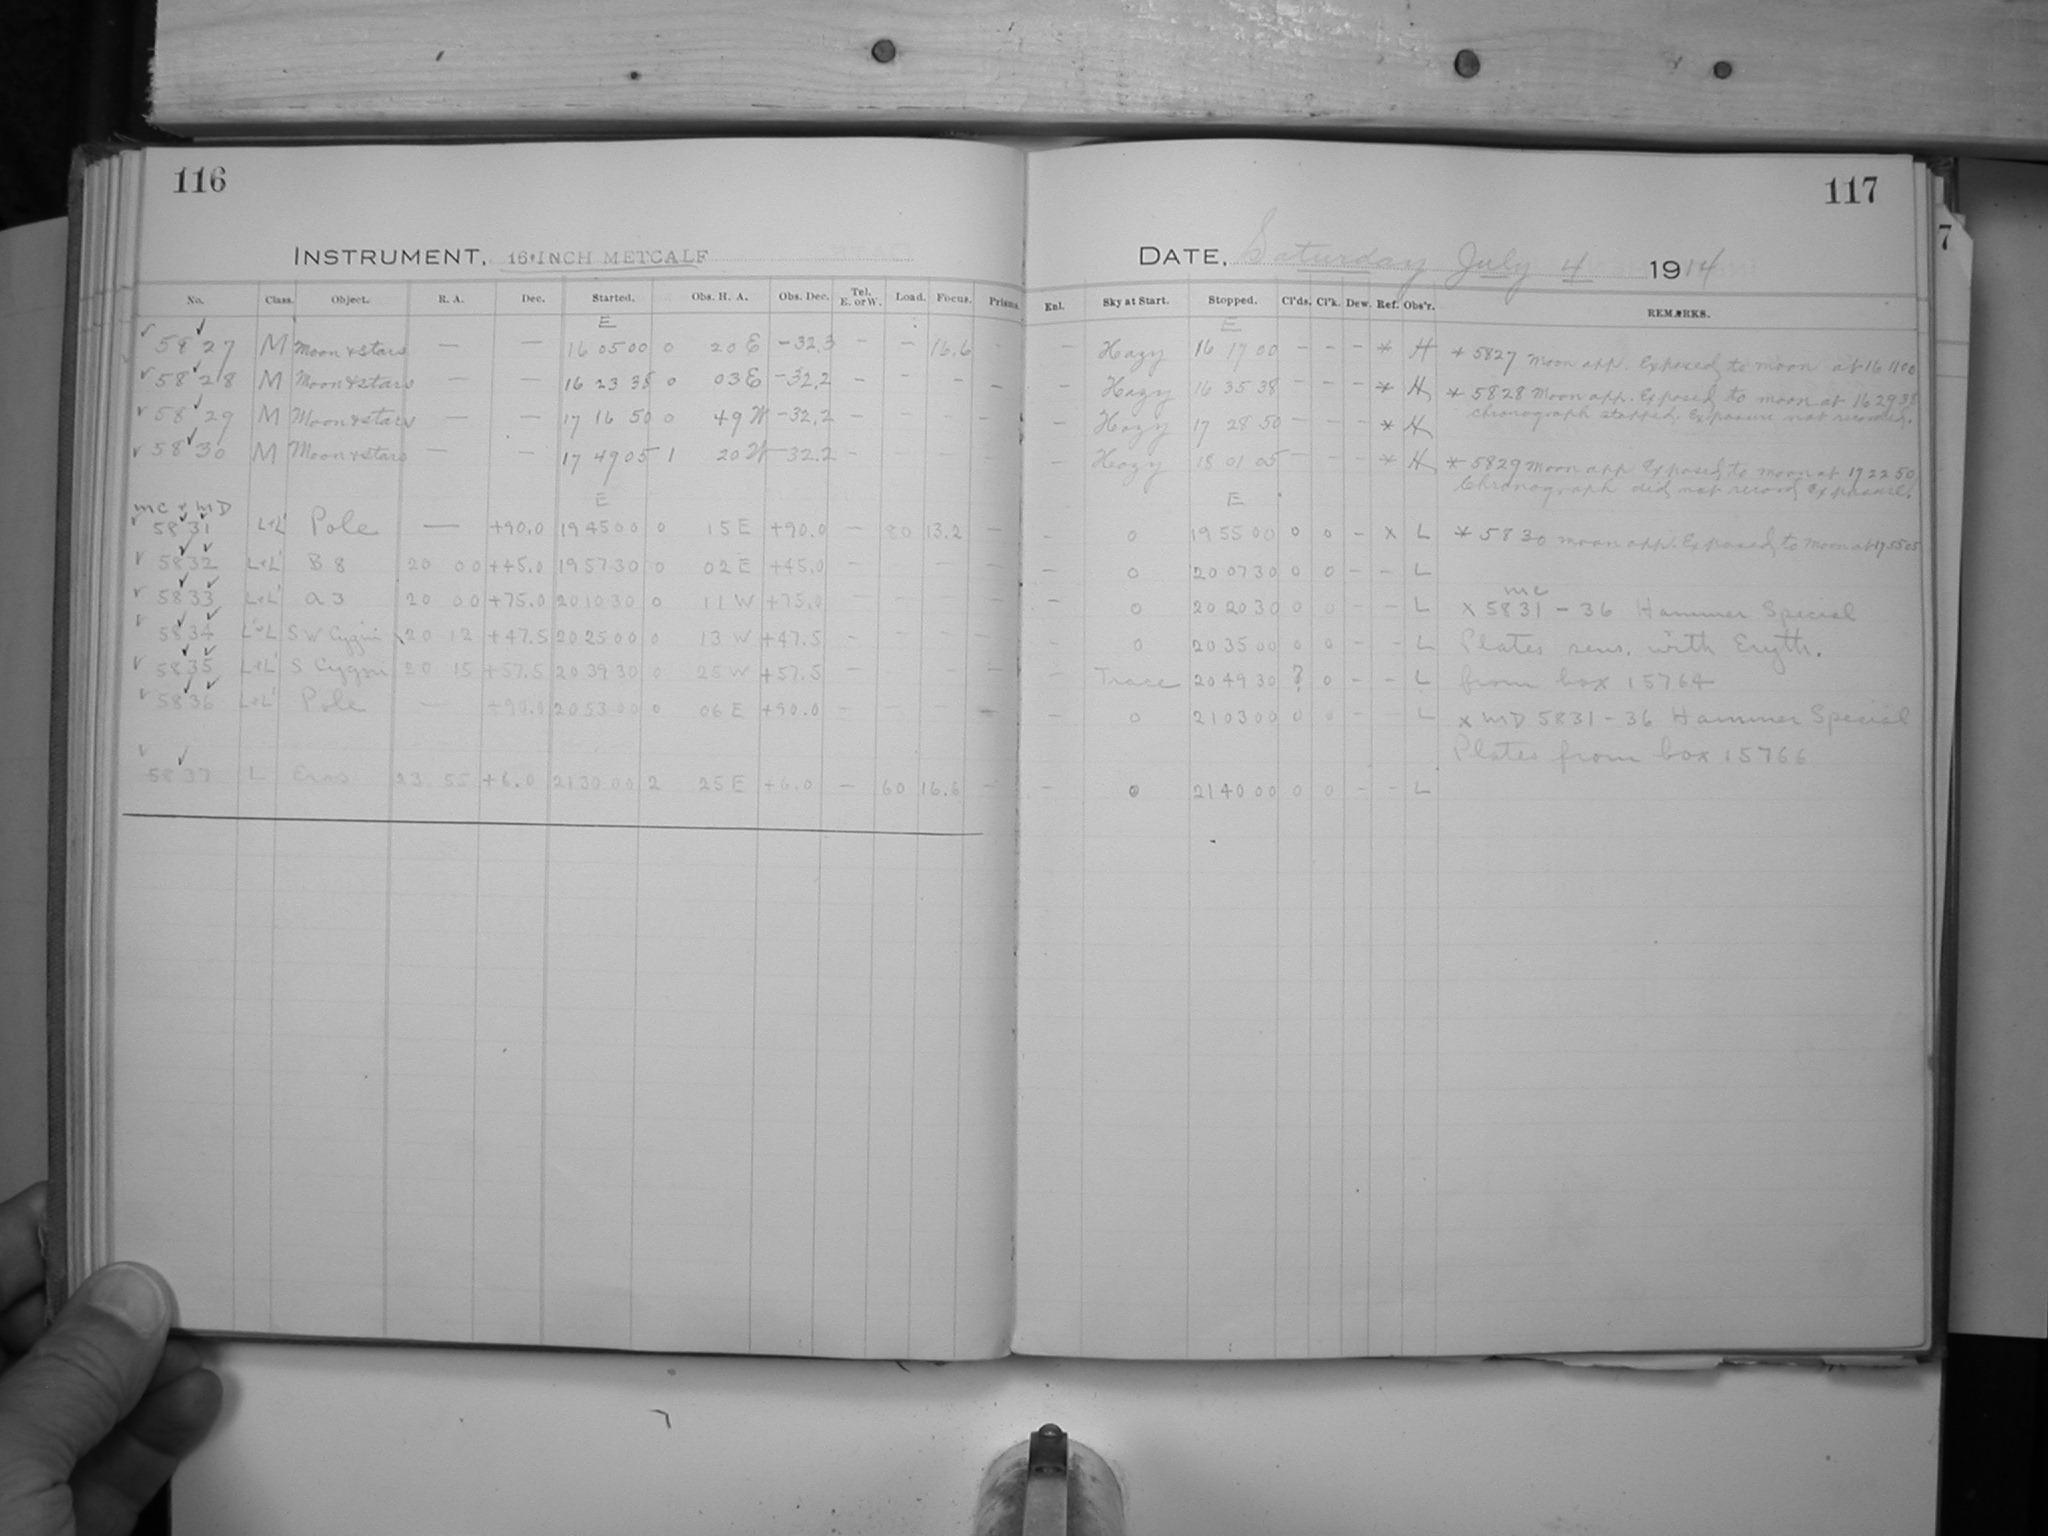 116
INSTRUMENT, 16-INCH METCALF
No. Class. Object. R. A. Dec. Started. Obs. H. A. Obs. Dec. Tel. E. or W. Load. Focus. Prisms.
E
5827 M Moon & stars — — 16 05 00 0 20 E -32.3 — — 16.6 —
5828 M Moon & stars — — 16 23 38 0 03 E -32.2 — — — —
5829 M Moon & stars — — 17 16 50 0 49 W -32.2 — — — —
5830 M Moon & stars — — 17 49 05 1 20 W -32.2 —
mc & MD E
5831 L+L' Pole — +90.0 19 45 00 0 15 E +90.0 — 80 13.2 —
5832 L+L' B 8 20 00 +45.0 19 57 30 0 02 E +45.0 — — — —
5833 L+L' a 3 20 00 +75.0 20 10 30 0 11 W +75.0 — — — —
5834 L'+L SW Cygni 20 12 +47.5 20 25 00 0 13 W +47.5 — — — —
5835 L+L' S Cygni 20 15 +57.5 20 39 30 0 25 W +57.5 — — — —
5836 L+L' Pole — +90.0 20 53 00 0 06 E +90.0 — — — —
5837 L Eros 23 55 +6.0 21 30 00 2 25 E +6.0 — 60 16.6 —
117
DATE, Saturday July 4 1914
Enl. Sky at Start. Stopped. Cl'ds. Cl'k. Dew. Ref. Obs'r. REMARKS.
E
— Hazy 16 17 00 — — — * H * 5827 Moon app. Exposed to moon at 16 11 00
— Hazy 16 35 38 — — — * H * 5828 Moon app. Exposed to moon at 16 29 38
chronograph stopped. Exposure not recorded.
— Hazy 17 28 50 — — — * H
— Hazy 18 01 05 — — — * H * 5829 Moon app Exposed to moon at 17 22 50
Chronograph did not record exposure.
E
— 0 19 55 00 0 0 — x L * 5830 moon app. Exposed to Moon at 17 55 05
— 0 20 07 30 0 0 — — L
mc
— 0 20 20 30 0 0 — — L x 5831 - 36 Hammer Special
0 20 35 00 0 0 — — L Plates sens. with Eryth.
— Trace 20 49 30 ? 0 — — L from box 15764
— 0 21 03 00 0 0 — — L x MD 5831 - 36 Hammer Special
Plates from box 15766
— 0 21 40 00 0 0 — — L
7